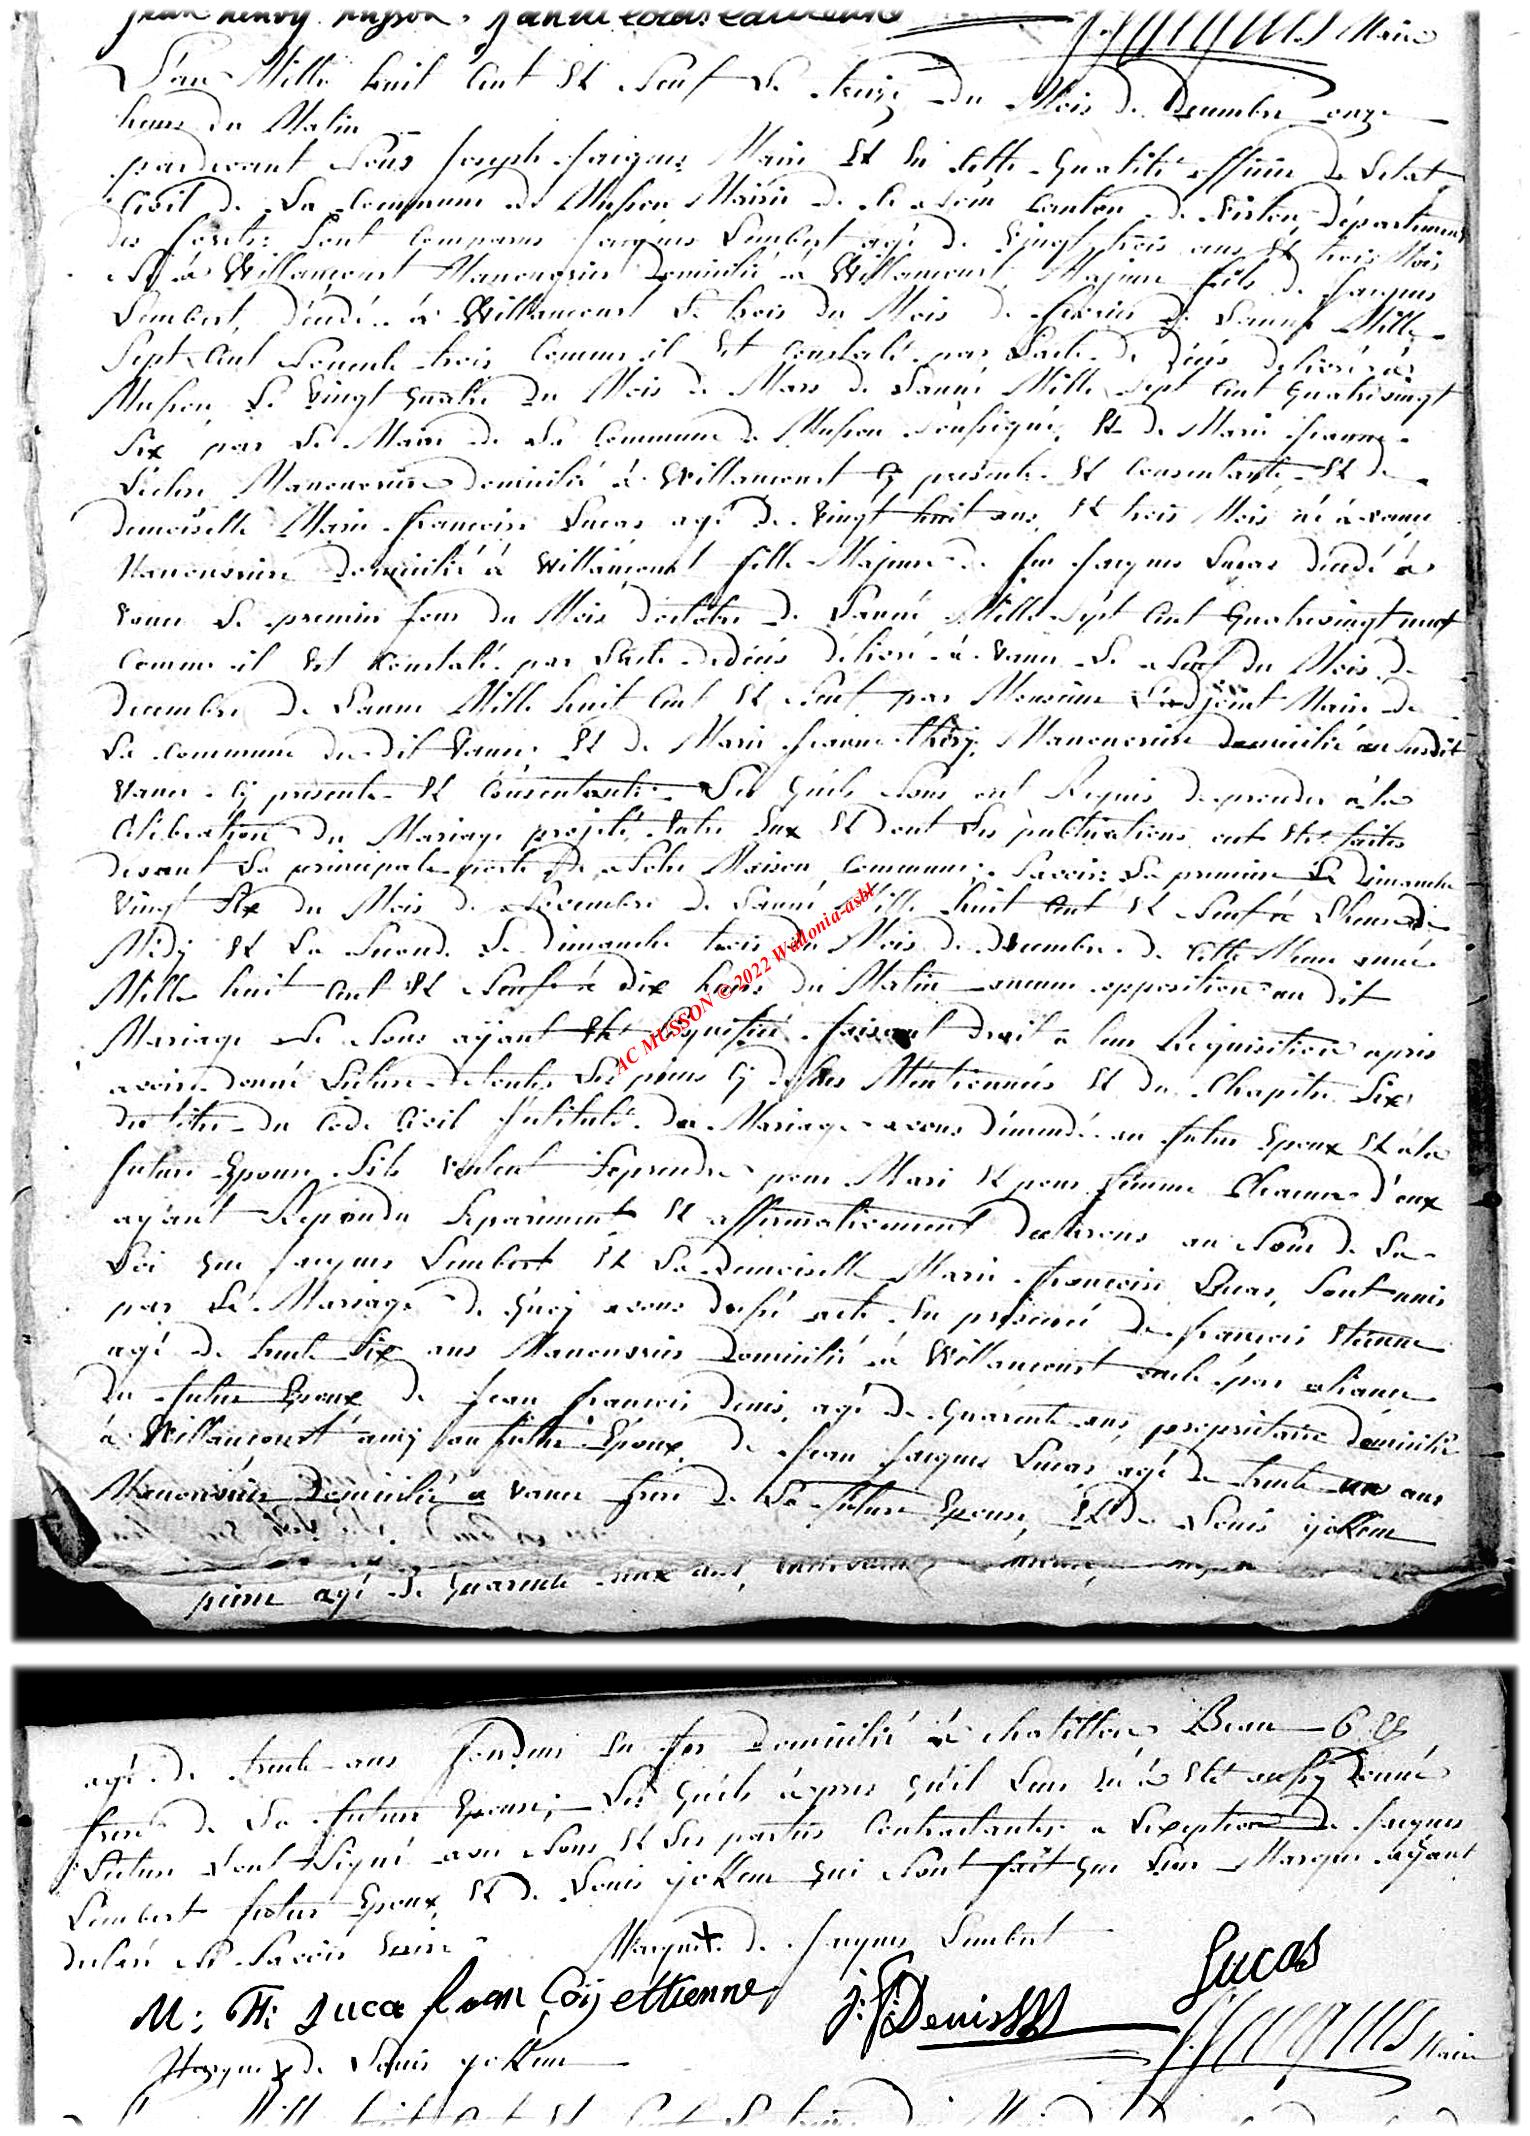 jean henry musson. Maire
L'an Mille huit Cent Et Neuf Le treize Du Mois De Decembre onze
heure du Matin
pardevant Nous Joseph Jacques Maire Et En Cette qualité officier De L'etat
Civil De La Commune De Musson Mairie De Canton De Virton, Département
des forêts: Sont Comparus Jacques Limbert agé de Vingt trois ans Et trois Mois
Né à Willancourt Manouvrier Domicilié à Willancourt Majeur fils de Jacques
Limbert, décédé à Willancourt Le trois du Mois de fevrier de L'année Mille
Sept Cent trois Comme il Est Constaté par L'acte De Décés délivré à
Musson Le Vingt quatre Du Mois de Mars de L'année Mille Sept Cent quatrevingt
Six par Le Maire de La Commune De Musson Soussigné, Et de Marie Jeanne
Manouvrière Domicilié à Willancourt Cy presente Et Consentante Et de
demoiselle Marie françoise Lucas agé De Vingt huit ans Et trois Mois né à Vance
Manouvrière Domicilié à Willancourt fille Majeure De feu Jacques Lucas décédé à
Vance Le premier Jour du Mois d'octobre De L'année Mille Sept Cent quatrevingt neuf
Comme il Est Constaté par L'acte dedécés délivré à Vance Le Neuf du Mois De
Decembre De L'année Mille huit Cent Et Neuf par Monsieur L'adjoint Maire De
La Commune du dit Vance, Et de Marie Jeanne thiry Manouvrière Domicilié au Susdit
Vance Cy presente Et Consentante. Les quels Nous ont Requis de proceder à la
Célébration Du Mariage projeté Entre Eux Et Dont Les publications ont Eté faites
devant La principale porte De Notre Maison Commune; Savoir La premiere Le Dimanche
Vingt Six du Mois de Novembre de L'année Mille huit Cent Et Neuf à L'heure de
Midy Et La Seconde Le Dimanche trois du Mois De Decembre De Cette Meme année
Mille huit Cent Et Neuf à dix heures du Matin aucune opposition au dit
AC MUSSON © 2022 Wallonia-asbl
Mariage Ne Nous ayant Eté Signifié faisant Droit à leur Requisition apris
avoir donné Lecture De toutes Les pieces Cy dessus Mentionnées Et du Chapitre Six
du titre du Code Civil Intitulé Du Mariage avons démandé au futur Epoux Et à la
future Epouse S'ils veulent Seprendre pour Mari Et pour femme Chacun d'eux
ayant Repondu Separément Et affirmativement Declarons au Nom de La
Loi que Jacques Limbert Et La Demoiselle Marie françoise Lucas, Sont unis
par Le Mariage De quoy avons dressé acte En présence De françois Etienne
agé de trente Six ans Manouvrier Domicilié à Willancourt oncle par aliance
du futur Epoux De Jean françois Denis, agé De quarente ans, proprietaire Domicilié
à Willancourt amy au futur Epoux, De Jean Jacques Lucas agé De trente un ans
Manouvrier Domicilié à Vance frere De La future Epouse, Et De Louis yokem
pierre agé De quarente
agé de trente ans fondeur En fer Domicilié à Chatillon Beau
frere de La future Epouse; Les quels àpres qu'il Leur En à Eté aussy Donné
Lecture L'ont Signé avec Nous Et Les parties Contractantes à L'exception De Jacques
Limbert futur Epoux, Et De Louis yokem qui N'ont fait que Leur Marque ayant
declaré Ne Savoir Ecrire.
Marque + De Jacques Limbert
Lucas
M: F: Luca ettienne J: F: Denis Jacques Maire
Marque x de Louis yokem